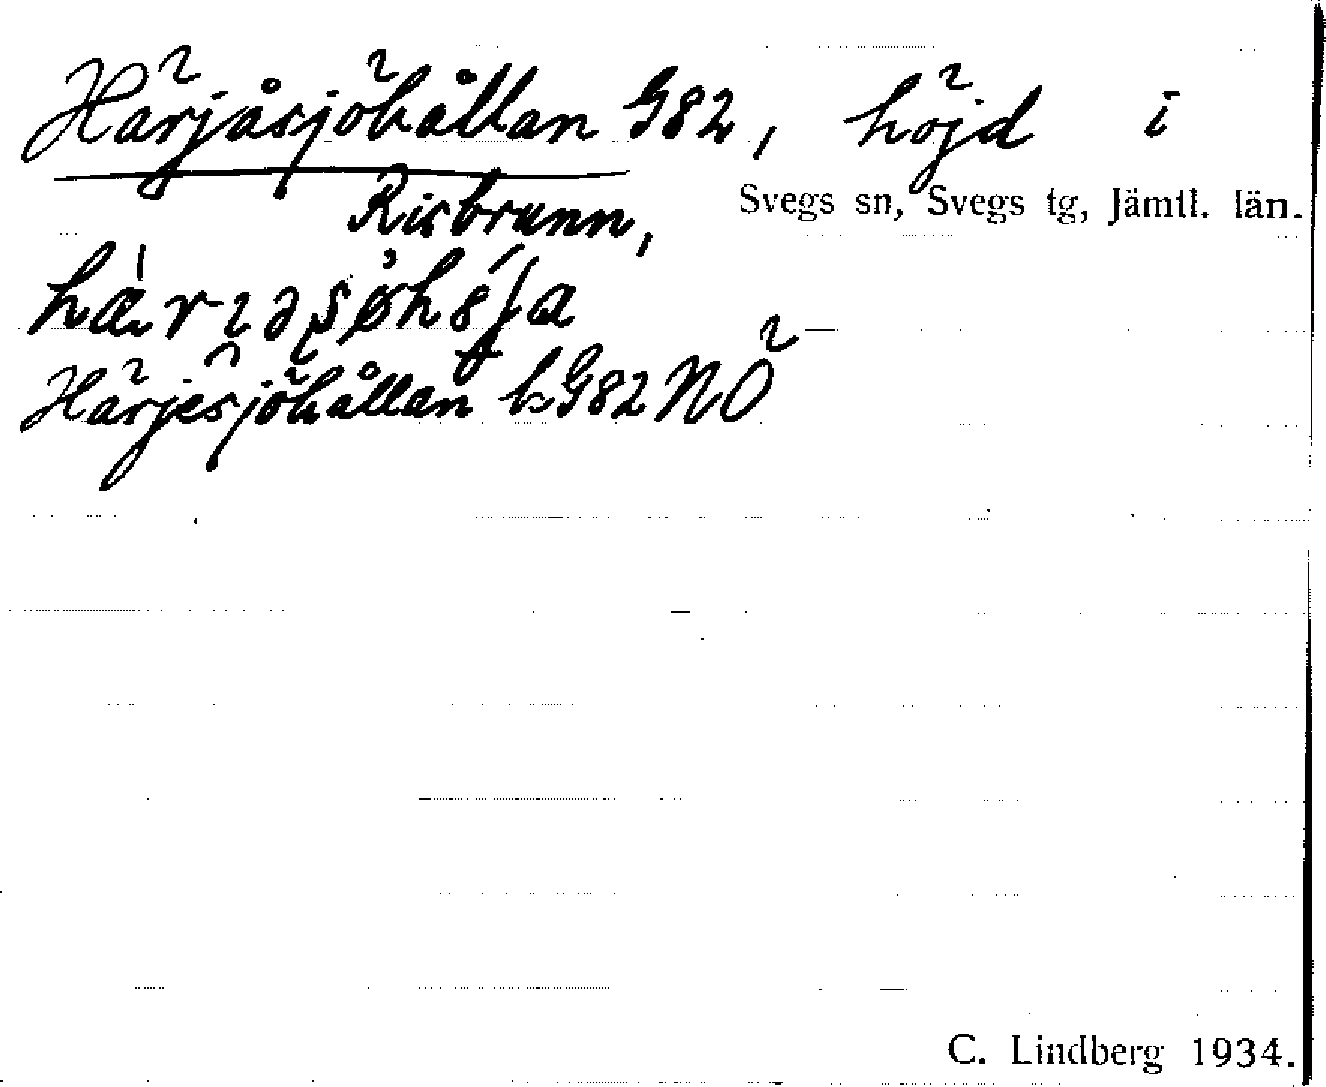 Härjåsjöhållan G82, höjd i
Risbrunn, Svegs sn, Svegs tg, Jämtl. län.
Härjesjöhållan bG82NÖ
C. Lindberg 1934.